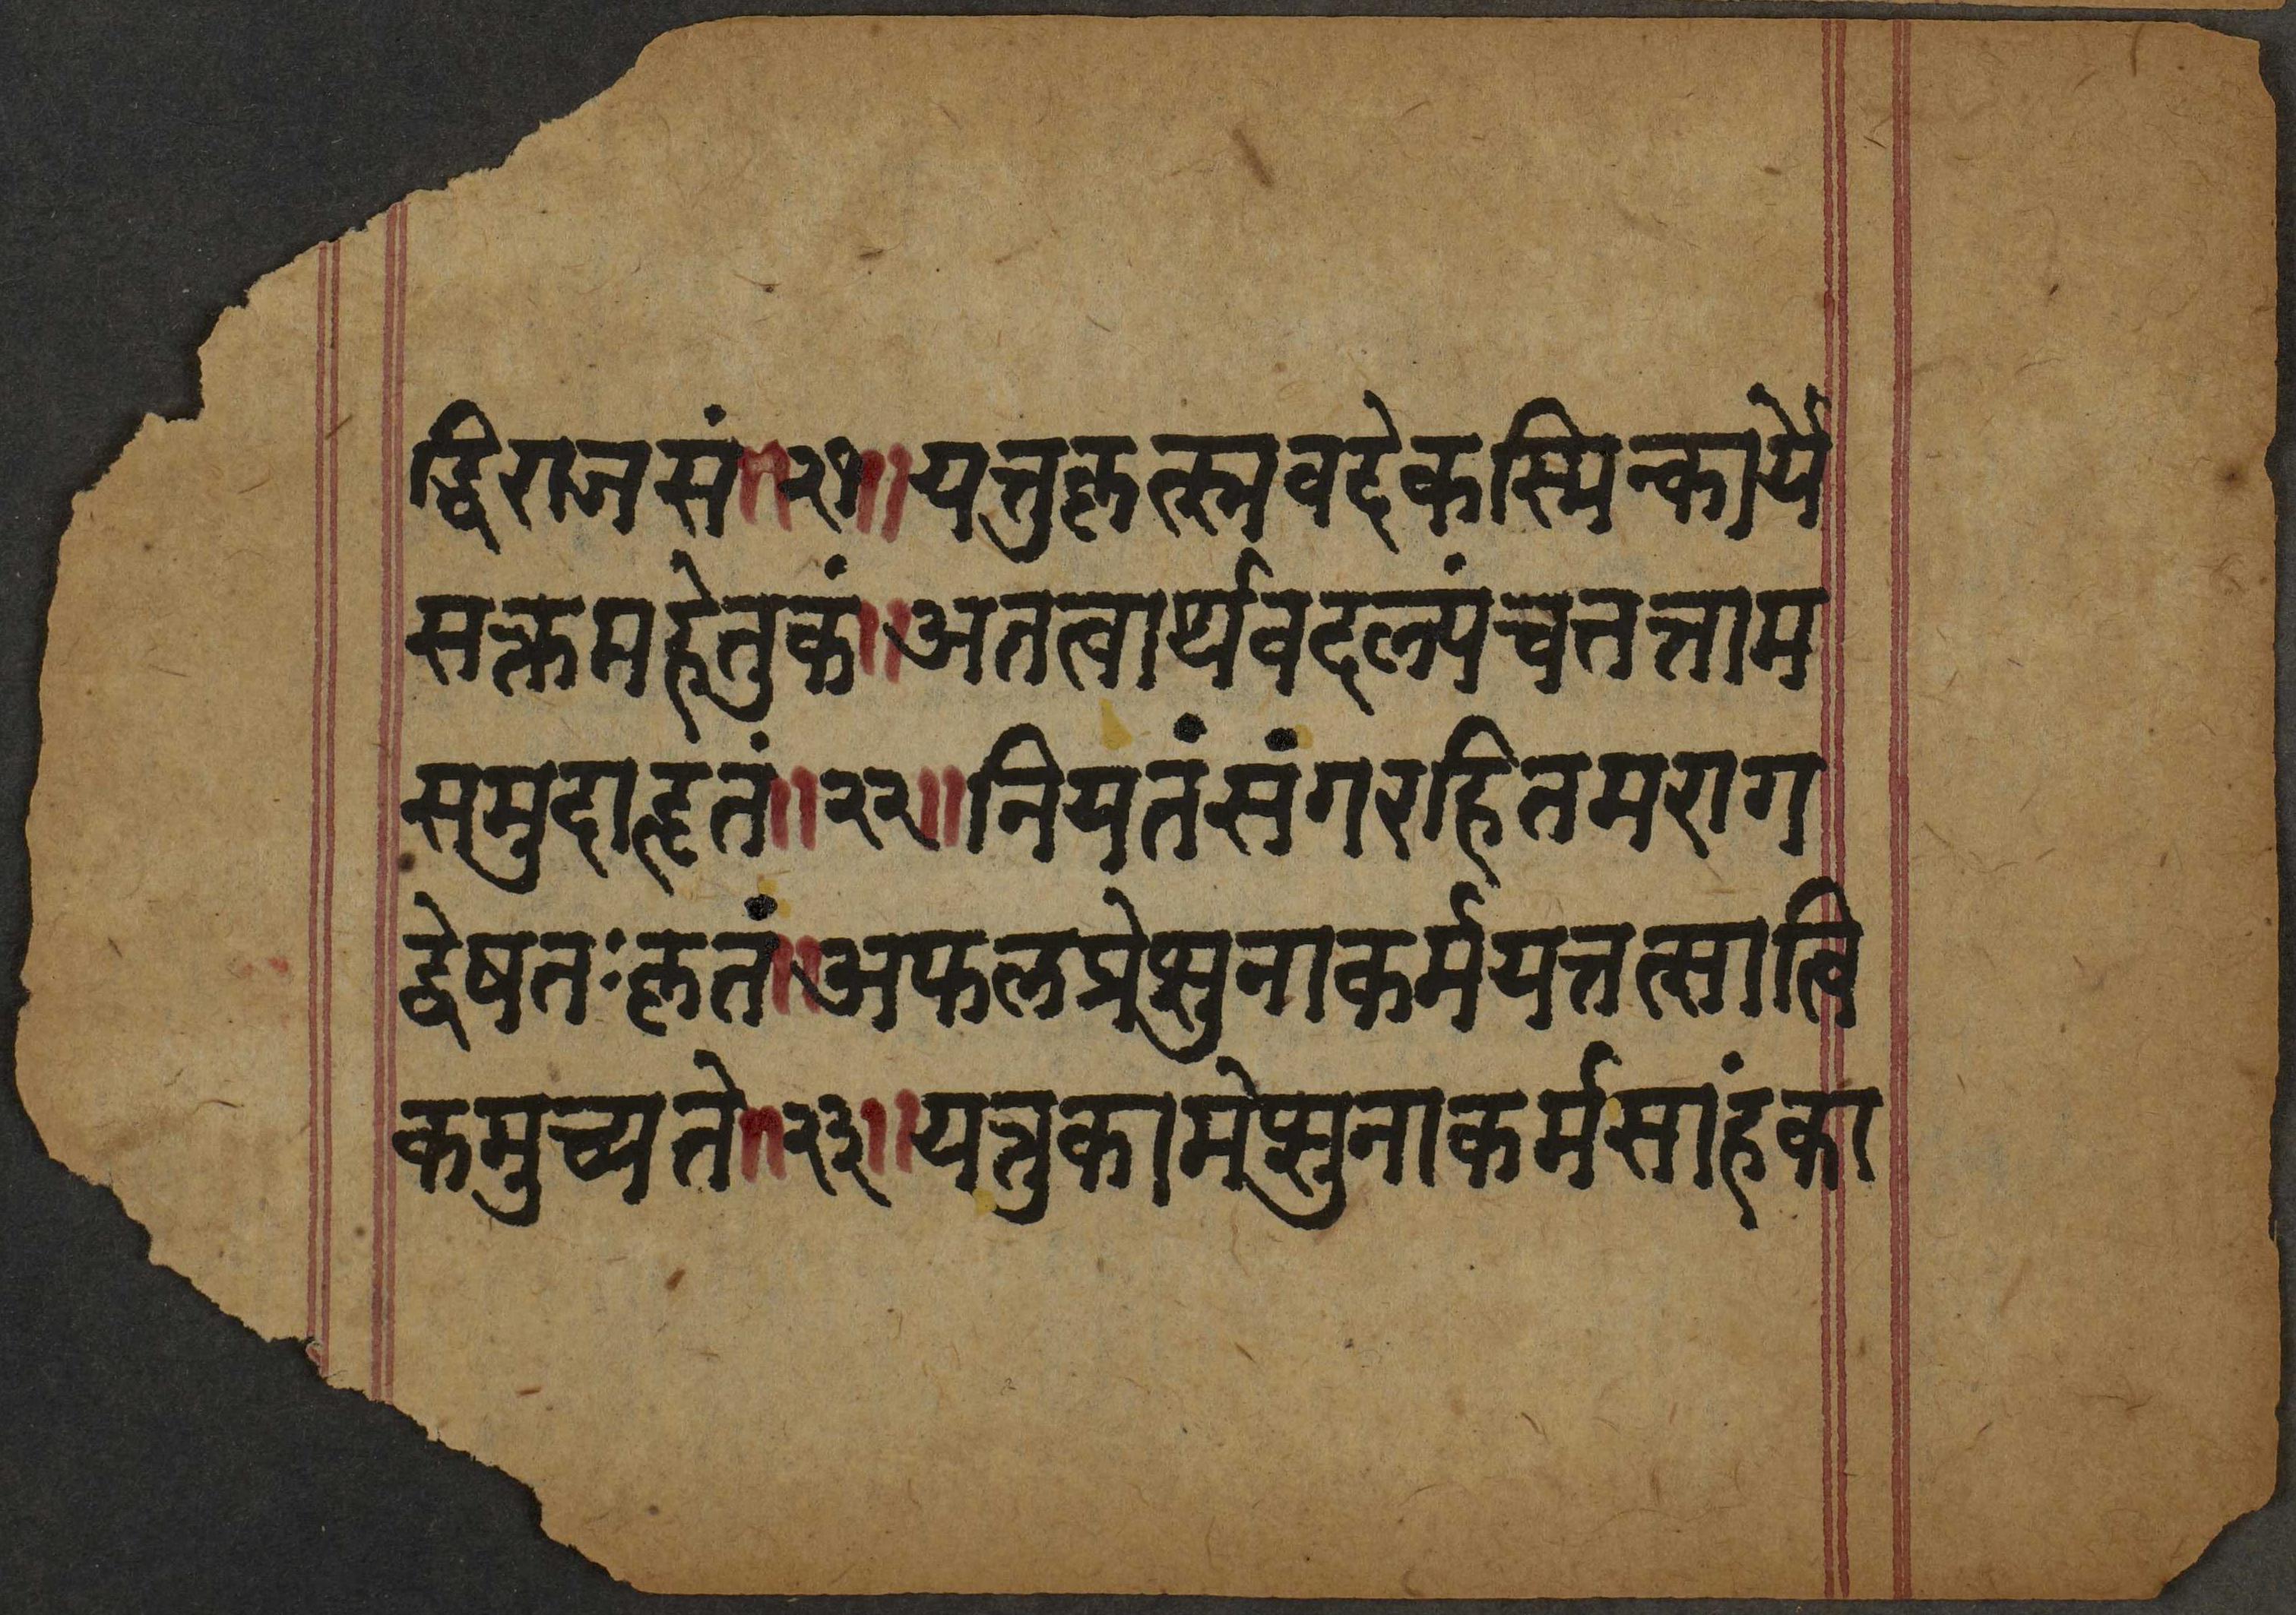 द्धिराजसं॥२१॥यत्तुकृत्स्नवदेकस्मिन्कार्ये
सक्तमहेतुकं॥अतत्वार्थवदल्पंचतत्ताम
समुदाहृतं॥२२॥नियतंसंगरहितमराग
द्वेषतःकृतं॥अफलप्रेप्सुनाकर्मयत्तत्सात्वि
कमुच्यते॥२३॥यत्तुकामेप्सुनाकर्मसाहंका